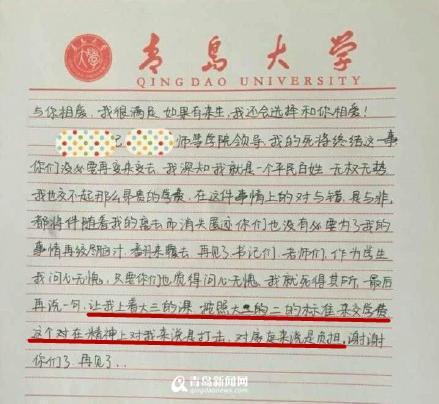 青岛大学
QINGDAO UNIVERSITY
与你相爱，我很满足，如果有来生，我还会选择和你相爱！
记，师范学院领导，我的死将终结这一事
你们没必要再变来变去，我深知我就是一个平民百姓，无权无势
我也交不起那么昂贵的学费，在这件事情上的对与错，是与非，
都将伴随着我的离去而消失匿迹，你们也没有必要为了我的
事情再绞尽脑汁，翻来覆去，再见了书记们，老师们，作为学生
我问心无愧，只要你们也觉得问心无愧，我就死得其所，最后
再说一句，让我上着大三的课，按照大一的大二的标准来交学费
这个对在精神上对我来说是打击，对家庭来说是负担，谢谢
你们了，再见了...
青岛新闻网
qingdaonews.com